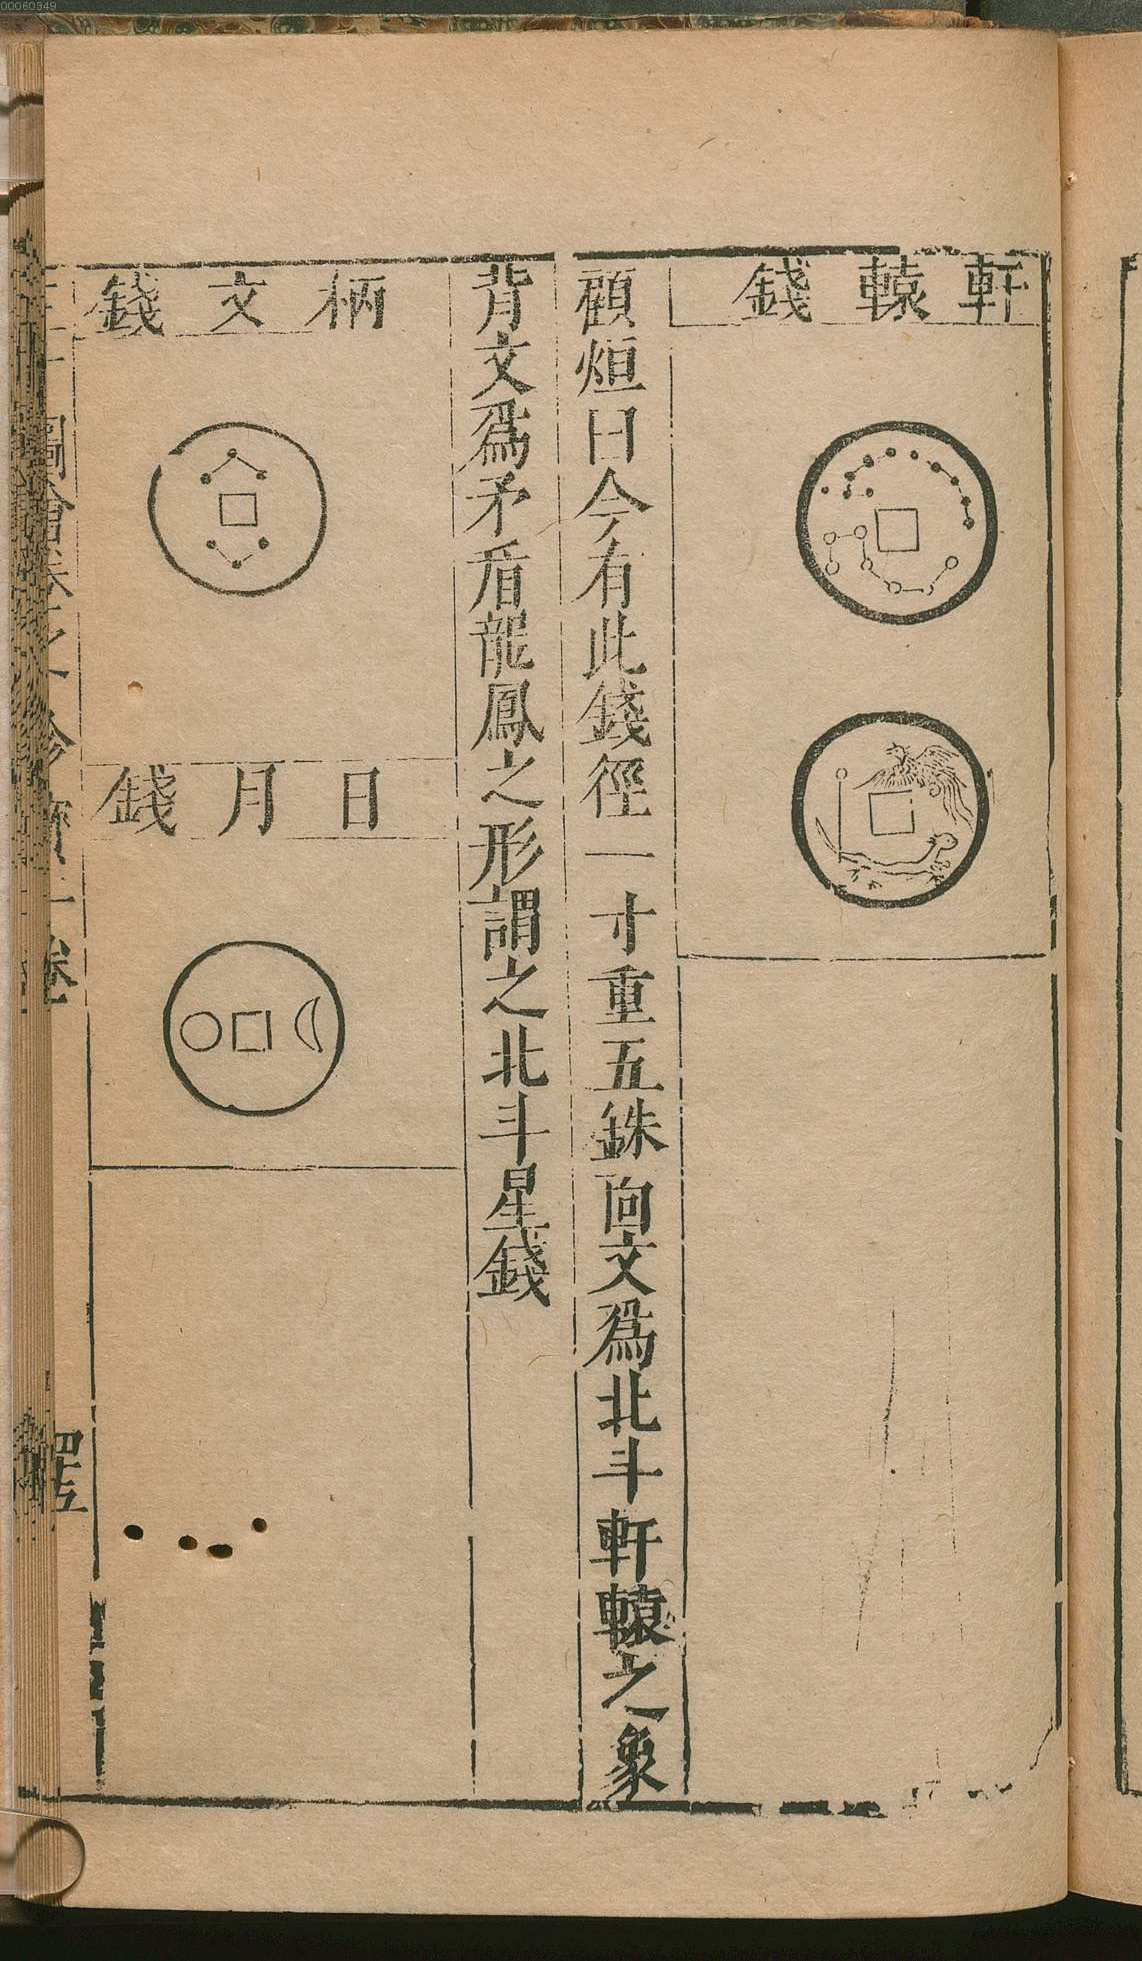 00060349
軒轅錢
顧烜曰今有此錢徑一寸重五銖面文爲北斗軒轅之象
背文爲矛盾龍鳳之形謂之北斗星錢
柄文錢
日月錢
圖會卷之